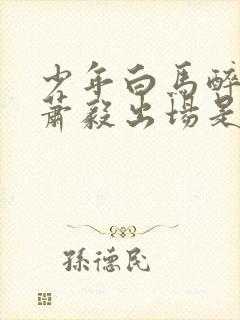 少年白馬醉
蕭毅出場是
孫德民